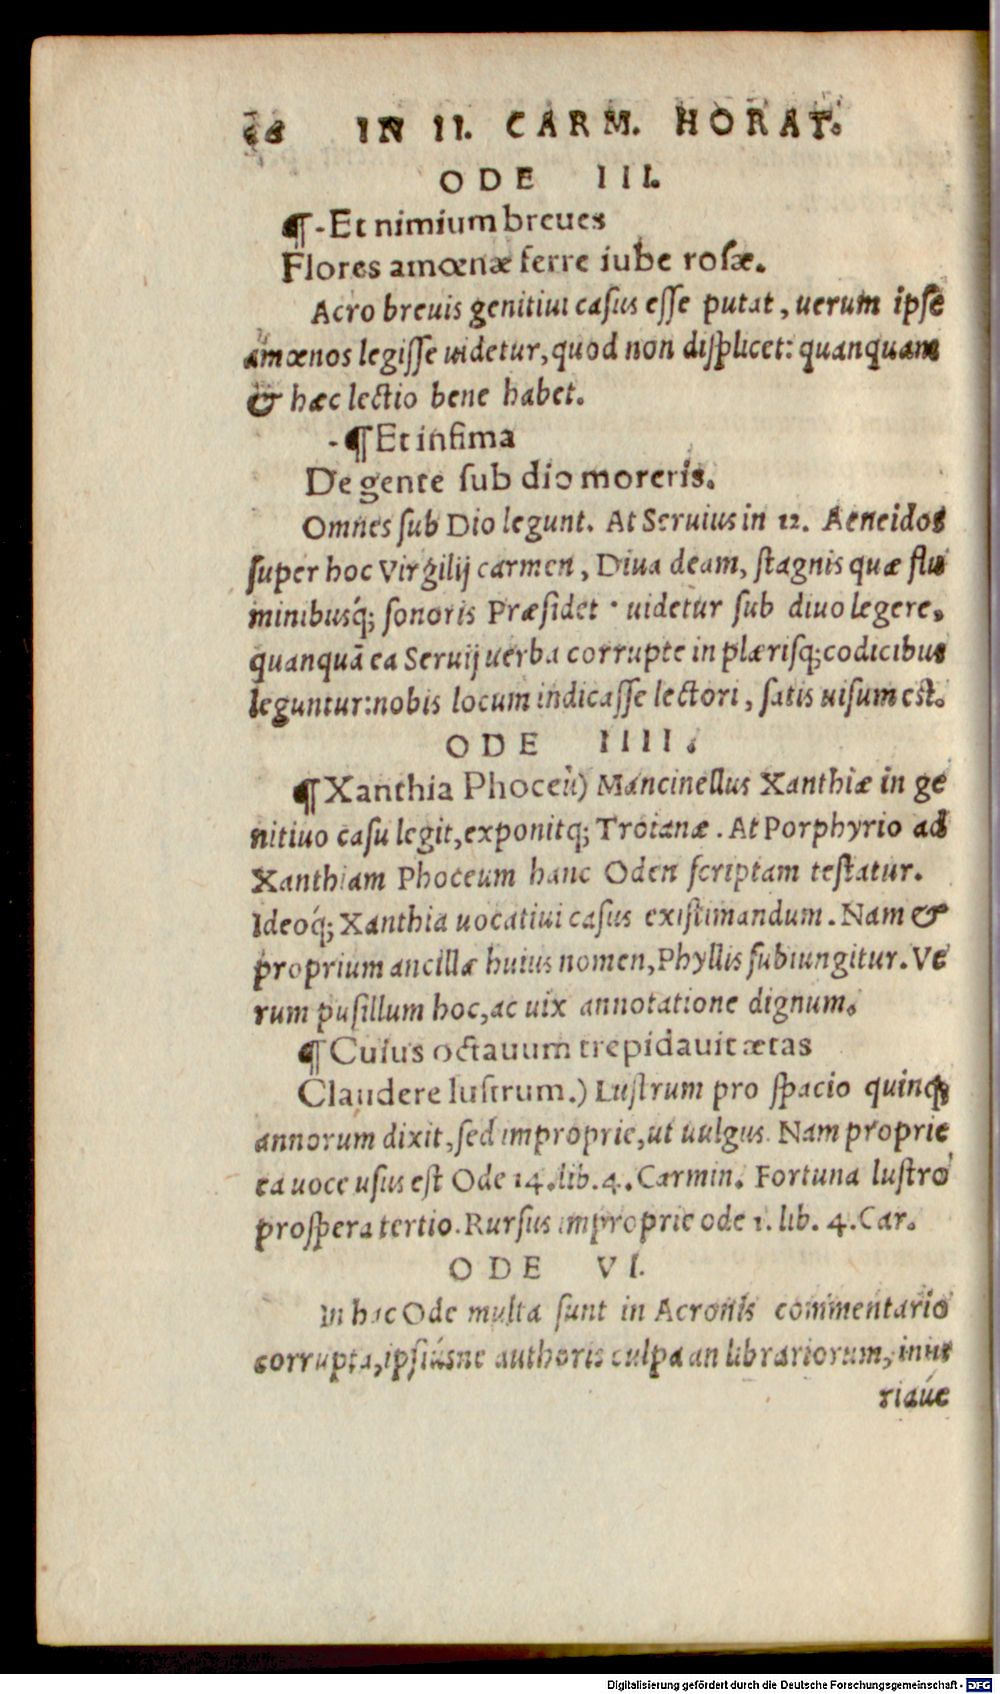 IN II. CARM. HORAT.
ODE III.
¶-Et nimium breues
Flores amœnæ ferre iube rosæ.
Acro breuis genitiui casus esse putat, uerum ipse
amœnos legisse uidetur, quod non displicet: quanquam
& hæc lectio bene habet.
-¶Et infima
De gente sub dio moreris.
Omnes sub Dio legunt. At Seruius in 12. Aeneidos
super hoc Virgilij carmen, Diua deam, stagnis quæ flu
minibusq́; sonoris Præsidet · uidetur sub diuo legere,
quanquā ea Seruij uerba corrupte in plærisq; codicibus
leguntur: nobis locum indicasse lectori, satis uisum est.
ODE IIII.
¶Xanthia Phoceù) Mancinellus Xanthiæ in ge
nitiuo casu legit, exponitq; Troianæ. At Porphyrio ad
Xanthiam Phoceum hanc Oden scriptam testatur.
Ideoq́; Xanthia uocatiui casus existimandum. Nam &
proprium ancillæ huius nomen, Phyllis subiungitur. Ve
rum pusillum hoc, ac uix annotatione dignum.
¶Cuius octauum trepidavit ætas
Claudere lustrum.) Lustrum pro spacio quinq;
annorum dixit, sed improprie, ut uulgus. Nam proprie
ea uoce usus est Ode 14. lib. 4. Carmin. Fortuna lustro
prospera tertio. Rursus improprie ode 1. lib. 4. Car.
ODE VI.
In hac Ode multa sunt in Acronis commentario
corrupta, ipsiúsne authoris culpa an librariorum, iniu
riaúe
Digitalisierung gefördert durch die Deutsche Forschungsgemeinschaft - DFG